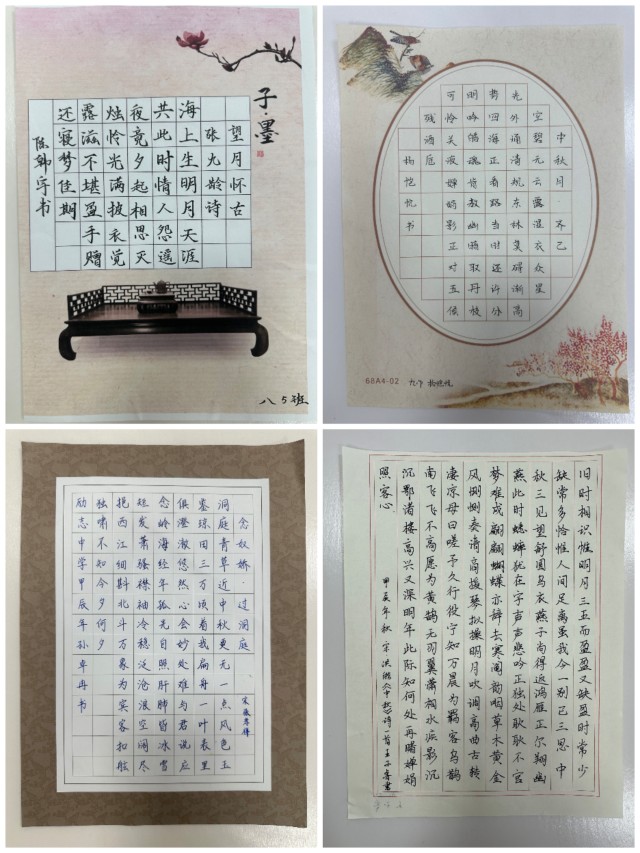 子·墨
望月怀古
张九龄诗
海上生明月天涯
共此时情人怨遥
夜竟夕起相思灭
烛怜光满披衣觉
露滋不堪盈手赠
还寝梦佳期
宇书
八5班
中秋月·齐己
空碧无云露湿衣众星
光外涌清规东林莫碍渐高
势四海正看当路时还许分
明吟皓魄肯教幽暗取丹枝
可怜关夜婵娟影正对五侯
残酒卮
杨恺忱书
68A4-02
念奴娇·过洞庭
宋张孝祥
洞庭青草近中秋更无一点风色玉
鉴琼田三万顷着我扁舟一叶表里
俱澄澈悠然心会妙处难与君说应
念岭海经年孤光自照肝肺皆冰雪
短发萧骚襟袖冷稳泛沧浪空阔尽
挹西江细斟北斗万象为宾客扣舷
独啸不知今夕何夕
励志中学甲辰年孙卓冉书
旧时相识惟明月三五而盈盈又缺盈时常少
缺常多恰惟人间足离虽我今一别已三思中
秋三见望舒圆乌衣燕子尚得返鸿雁正尔翔幽
燕此时蟋蟀犹在宇声声悲吟正独处耿耿不
梦难成翩翩蝴蝶亦辞去寒闺韵咽草木黄金
风捌捌奏清商援琴拟操明月吹调高曲古转
凄凉母曰嗟予久行役宁知万晨为羁客乌鹊
南飞飞不高愿为黄鹄无羽翼萧湘水派影沉
沉鄂渚楼高兴又深明年此际知何处再睹婵娟
照客心
甲辰年秋宋洪《中秋》诗一首王子书